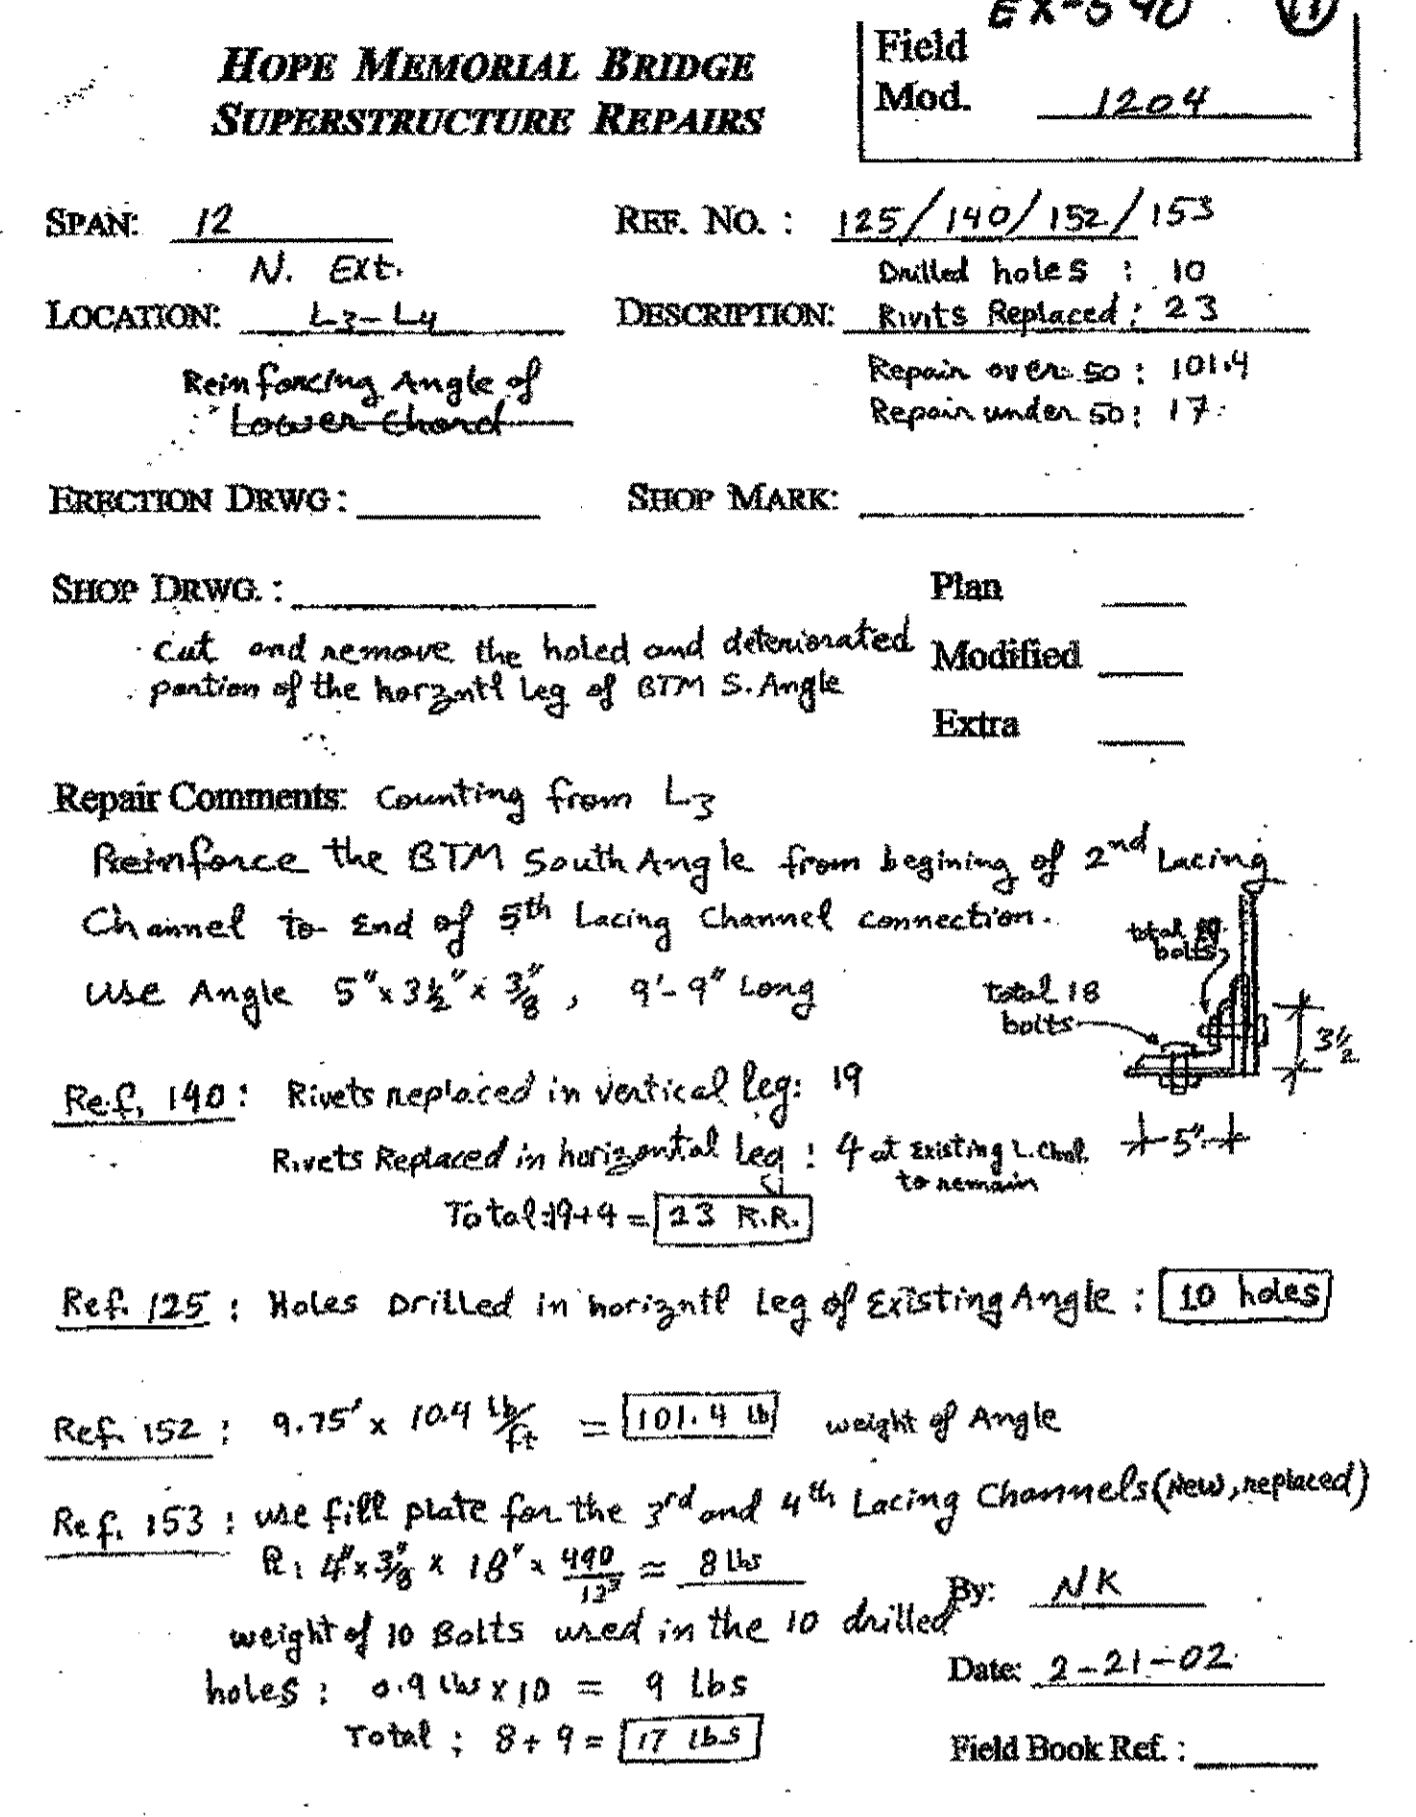 EX-590 11
HOPE MEMORIAL BRIDGE
SUPERSTRUCTURE REPAIRS
Field
Mod. 1204
SPAN: 12
REF. NO. : 125/140/152/153
N. Ext.
Drilled holes : 10
LOCATION: L3-L4
DESCRIPTION: Rivits Replaced: 23
Reinforcing Angle of
Lower Chord
Repair over 50 : 101.4
Repair under 50: 17
ERECTION DRWG:
SHOP MARK:
SHOP DRWG. :
Plan
cut and remove the holed and deteriorated
Modified
portion of the horzntl leg of BTM S. Angle
Extra
Repair Comments: Counting from L3
Reinforce the BTM South Angle from begining of 2nd Lacing
Channel to End of 5th Lacing Channel connection.
total 19
bolts
use Angle 5"x3½"x3/8", 9'-9" Long
total 18
bolts
3½
Ref. 140: Rivets replaced in vertical leg: 19
Rivets Replaced in horizontal Leg : 4 at Existing L. Chnl.
to remain
5"
Total: 19+4 = 23 R.R.
Ref. 125 : Holes Drilled in horizntl Leg of Existing Angle : 10 holes
Ref. 152 : 9.75' x 10.4 lb/ft = 101.4 lb weight of Angle
Ref. 153 : use fill plate for the 3rd and 4th Lacing Channels (New, replaced)
PL: 4"x3/8" x 18" x 490/12³ = 8 lbs
By: NK
weight of 10 Bolts used in the 10 drilled
holes : 0.9 lbs x 10 = 9 Lbs
Date: 2-21-02
Total : 8+9 = 17 lbs
Field Book Ref. :